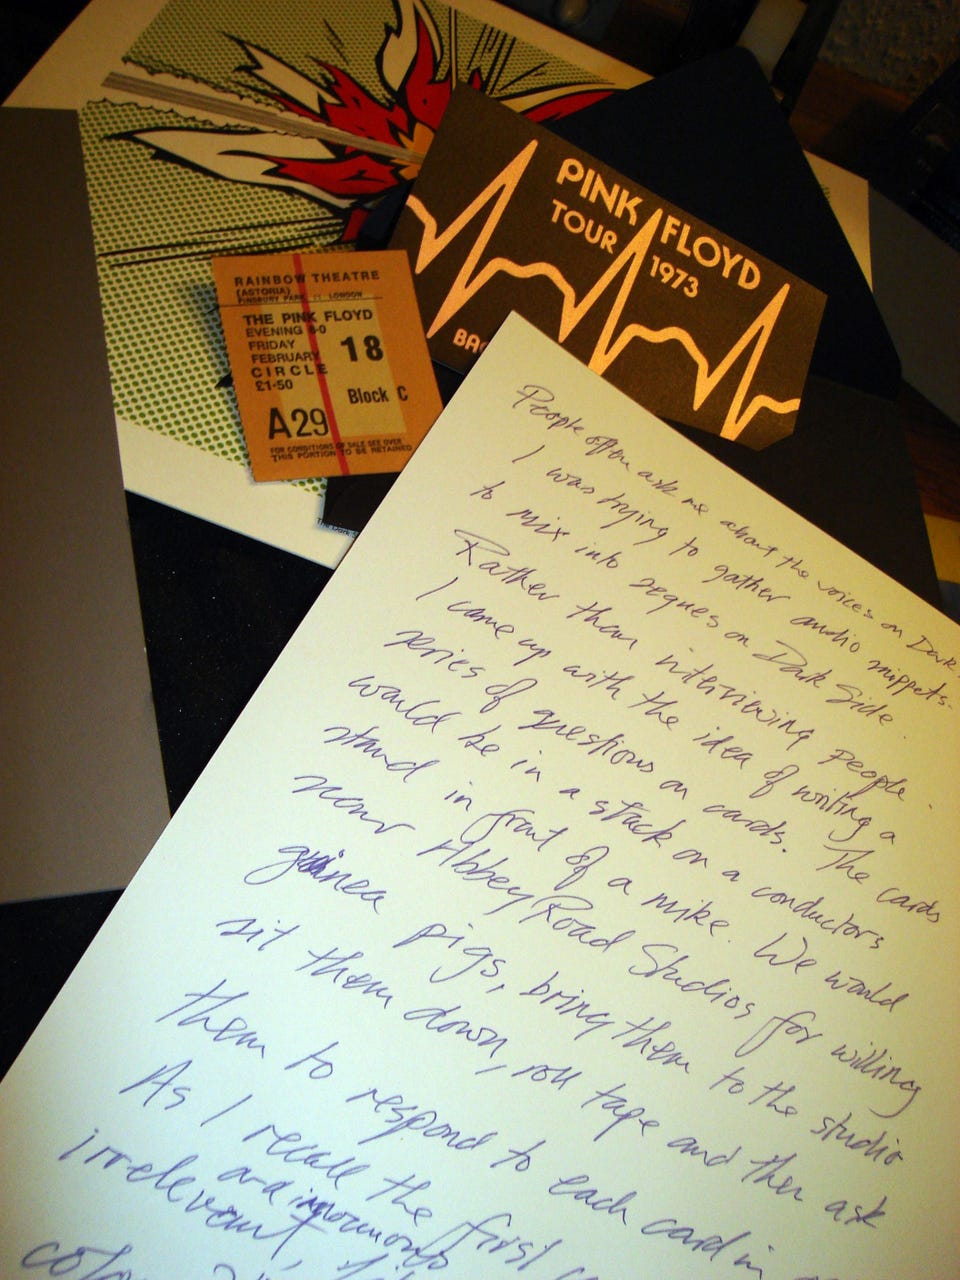 PINK FLOYD
TOUR 1973
RAINBOW THEATRE
(ASTORIA)
FINSBURY PARK LONDON
THE PINK FLOYD
EVENING 8-0
FRIDAY
FEBRUARY 18
CIRCLE
£1·50 Block C
A29
FOR CONDITIONS OF SALE SEE OVER
THIS PORTION TO BE RETAINED
People often ask me about the voices on Dark
I was trying to gather audio snippets
to mix into segues on Dark Side.
Rather than interviewing people.
I came up with the idea of writing a
series of questions on cards. The cards
would be in a stack on a conductors
stand in front of a mike. We would
Abbey Road Studios for willing
guinea pigs, bring them to the studio
sit them down, roll tape and then ask
them to respond to each card in
As I recall the first
irrelevant,